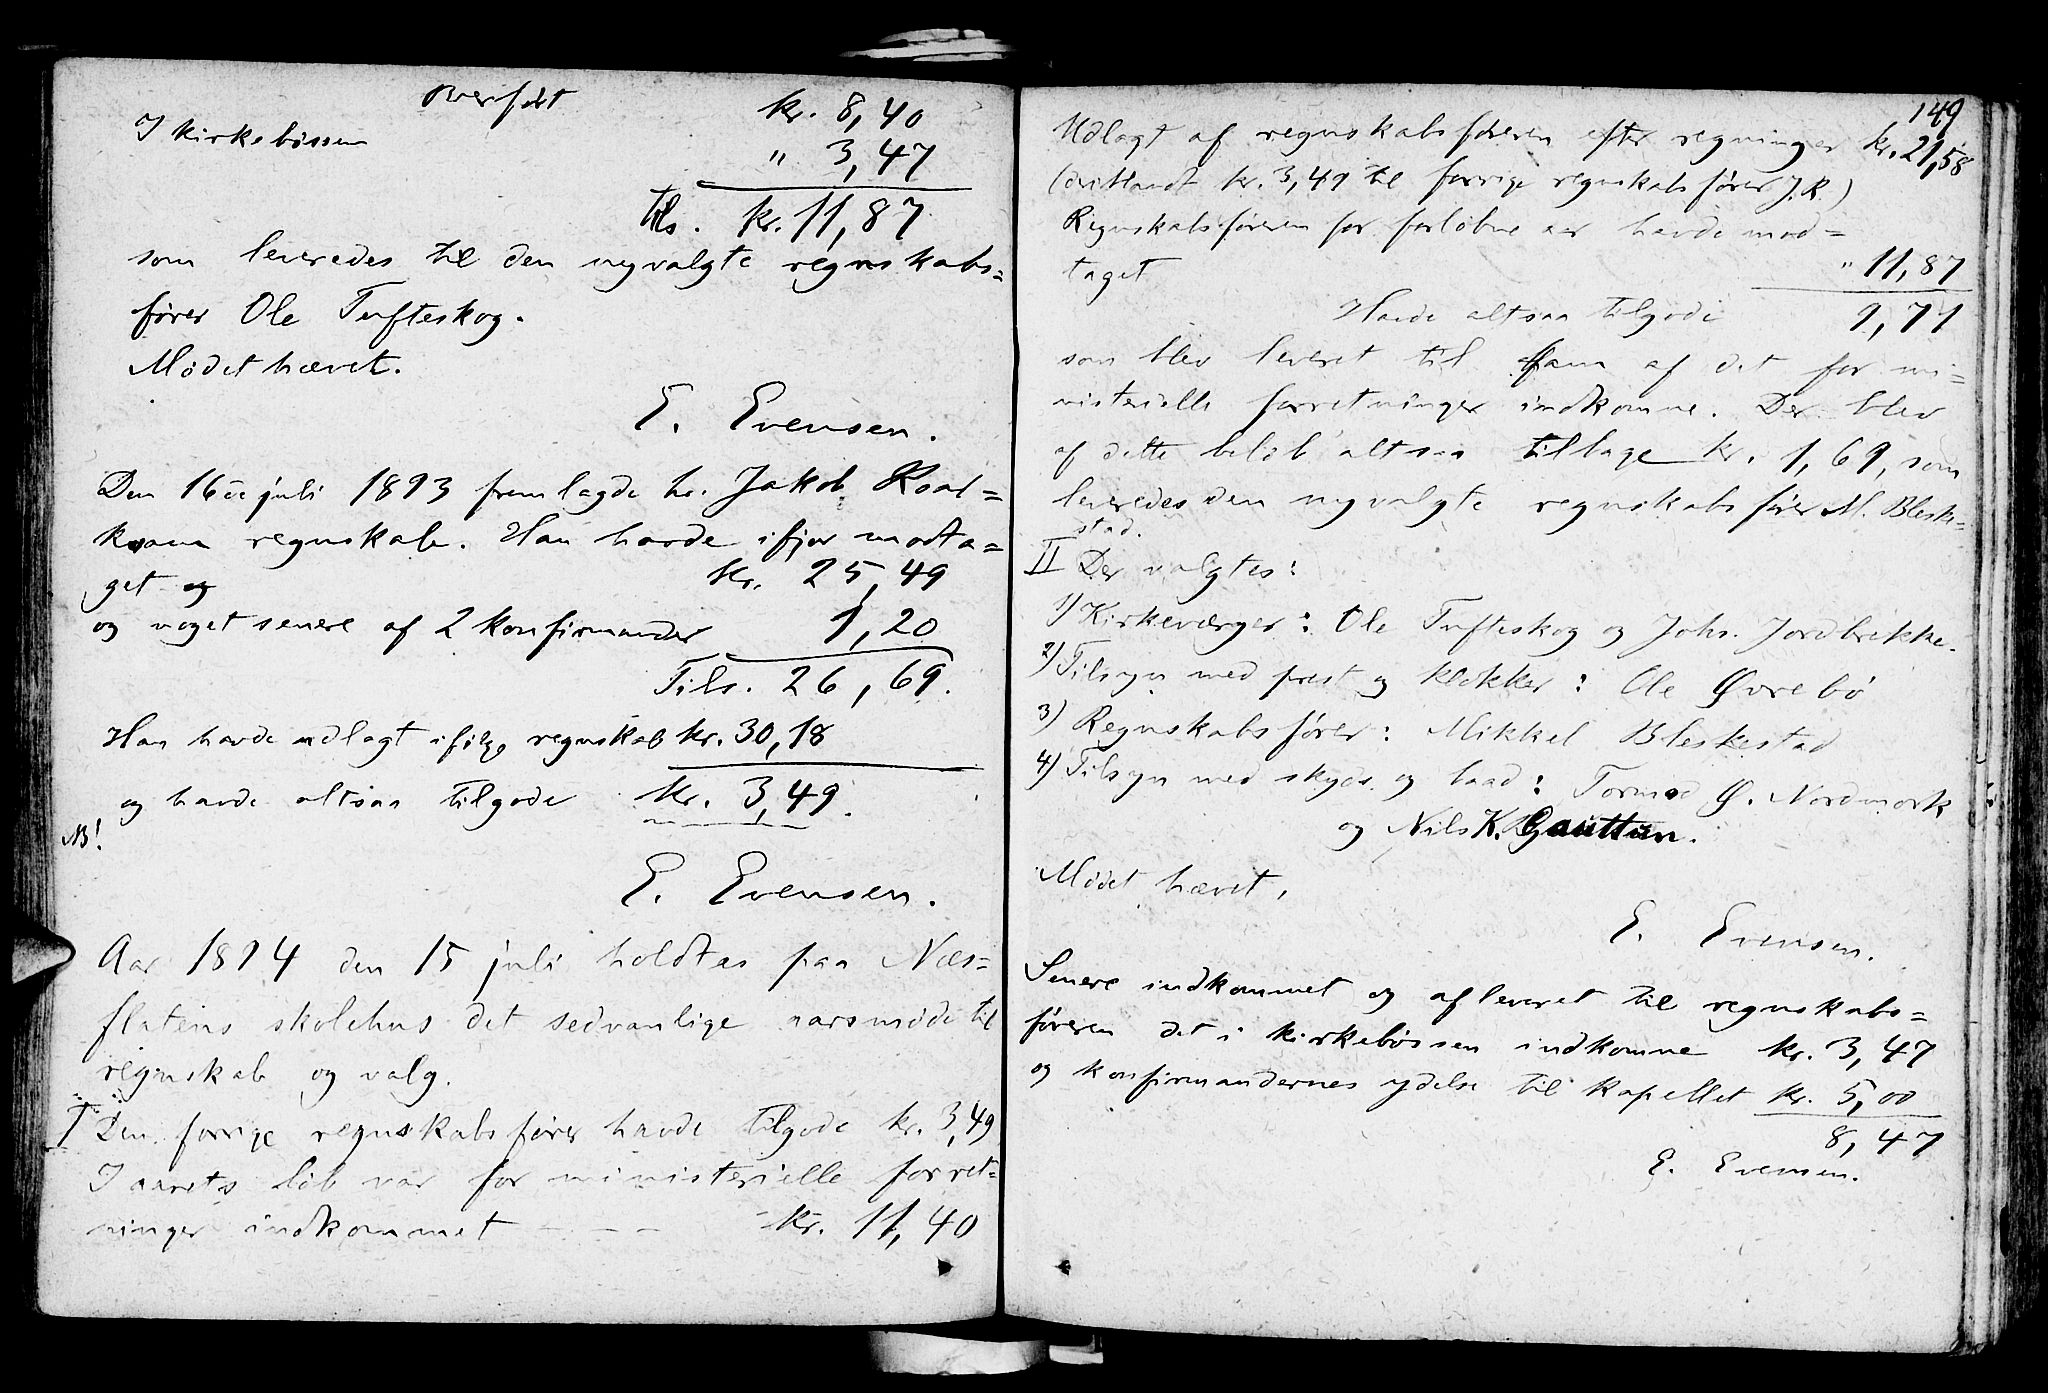 overført kr. 8,40
I kirkebøssen " 3,47
tils. kr. 11,87
som leveredes til den nyvalgte regnskabs=
fører Ole Tufteskog.
Mødet hævet.
E. Evensen.
Den 16de juli 1893 fremlagde hr. Jakob Roal=
regnskab. Han havde ifjor modta=
get og kr. 25,49
og noget senere af 2 konfirmander 1,20
Tils. 26,69.
Han havde udlagt ifølge regnskab kr. 30,18
og havde altsaa tilgode kr. 3,49.
NB!
E. Evensen.
Aar 1894 den 15 juli holdtes paa Næs=
flatens skolehus det sedvanlige aarsmøde til
regnskab og valg.
I Den forrige regnskabsfører havde tilgode kr. 3,49
I aarets løb var for ministerielle forret=
ninger indkommet - - - kr. 11,40
149
Udlagt af regnskabsføreren efter regninger kr. 21,58
(deriblandt kr. 3,49 til forrige regnskabsfører J.R.)
Regnskabsføreren for forløbne aar havde mod=
taget " 11,87
Havde altsaa tilgode 9,71
som blev leveret til ham af det for mi=
nisterielle forretninger indkomne. Der blev
af dette beløb altsaa tilbage kr. 1,69, som
leveredes den nyvalgte regnskabsfører M. Bleske=
stad.
II Der valgtes:
1) Kirkeværger: Ole Tufteskog og Johs. Jordbrekke.
2) Tilsyn med prest og klokker: Ole Øvrebø
3) Regnskabsfører: Mikkel Bleskestad
4) Tilsyn med skyds og baad: Tormod Ø. Nordmork
og Nils K. Gauttun.
Mødet hævet,
E. Evensen.
Senere indkommet og afleveret til regnskabs=
føreren det i kirkebøssen indkomne kr. 3,47
og konfirmandernes ydelse til kapellet kr. 5,00
8,47
E. Evensen.